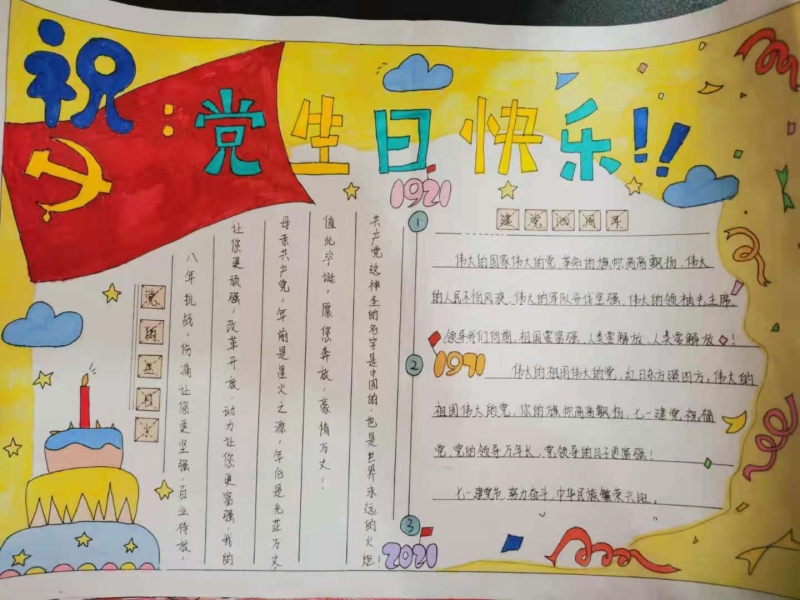 祝:党生日快乐!!
1921
1
建党周年
伟大的国家伟大的党,革命的旗帜高高飘扬,伟大
的人民不怕风浪,伟大的军队步伐坚强,伟大的领袖毛主席,
领导我们向前,祖国要富强,人类要解放,人类要解放!
2
1971
伟大的祖国伟大的党,红日东方照四方,伟大的
祖国伟大的党,你的旗帜高高飘扬,七一建党祝福
党,党的领导万年长,党领导的日子更富强!
七一建党节,努力奋斗,中华民族繁荣兴旺,
3
2021
共产党这神圣的名字是中国的,也是世界永远的火炬!
值此华诞,愿您奔放,豪情万丈!
母亲共产党,年前是星火之源,年后是光芒万丈,
让您更顽强,改革开放,动力让您更富强,我的
八年抗战,伤痛让您更坚强,百业待放,